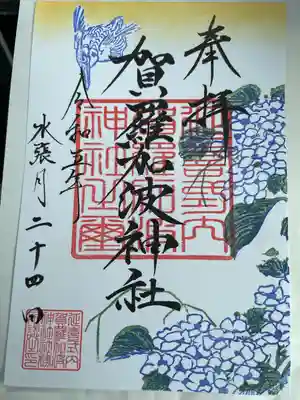 奉拝
賀羅加波神社
令和五年
水張月二十四日